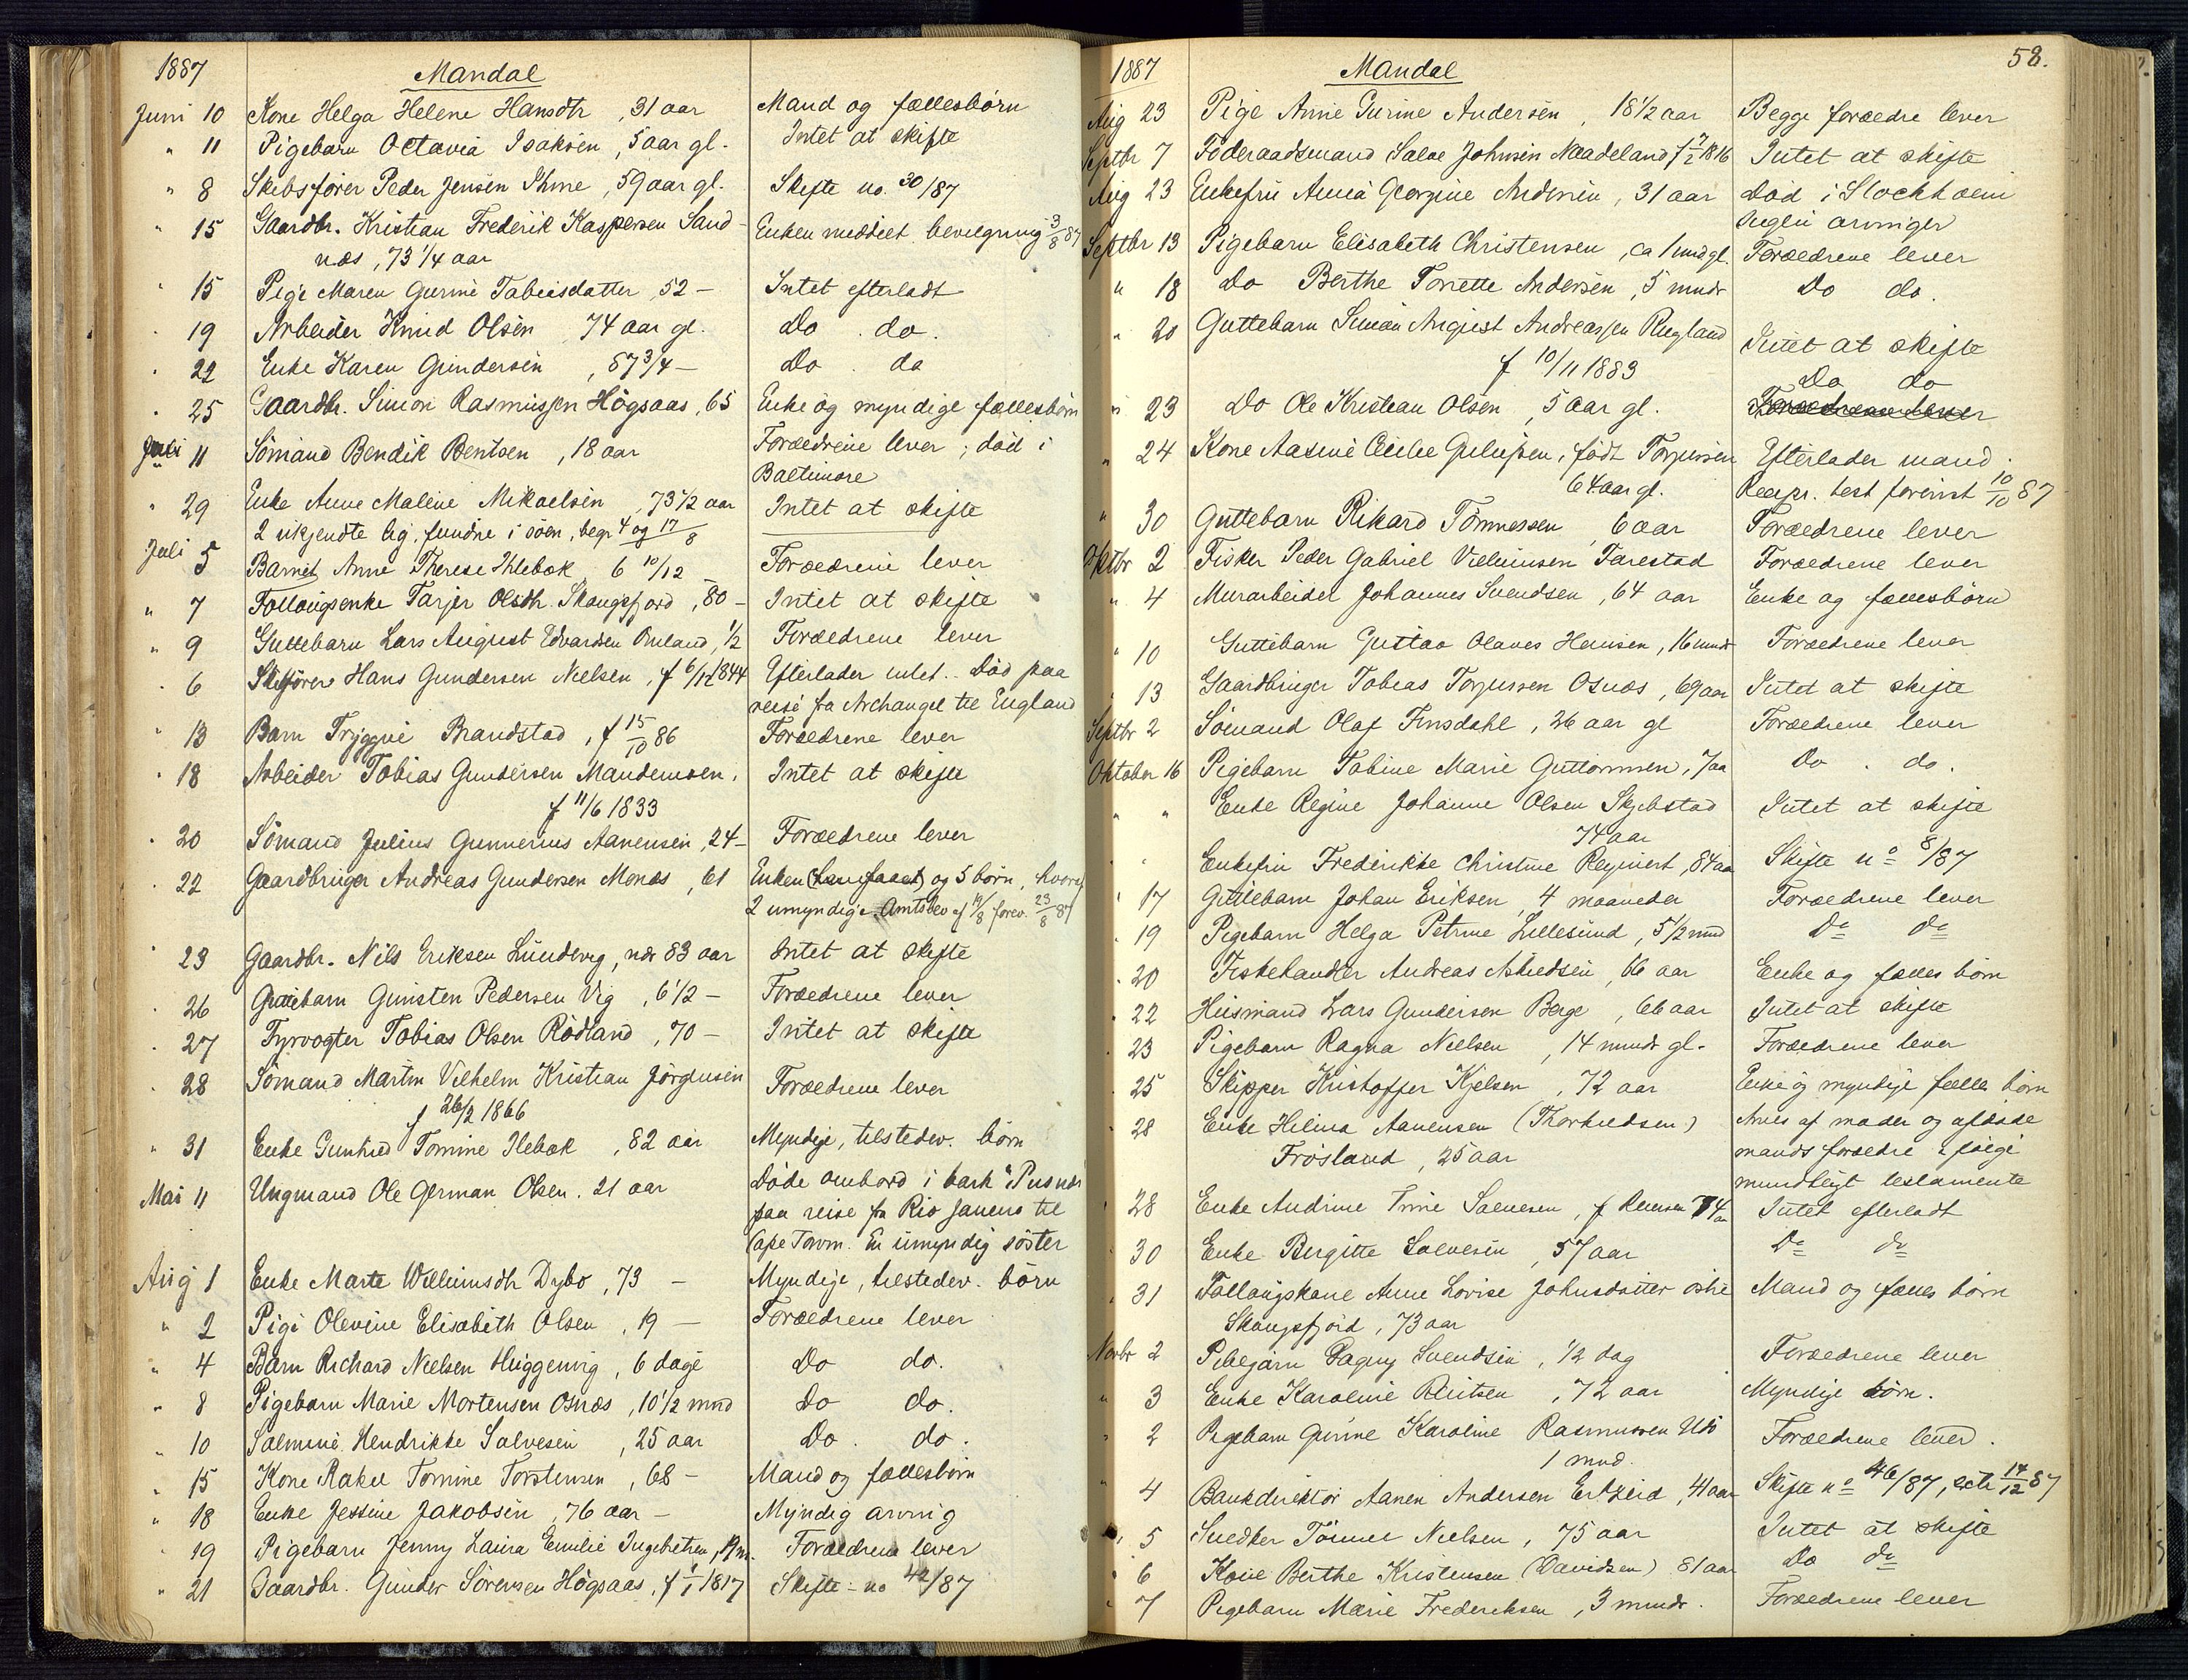 1887 Mandal
Juni 10 Kone Helga Helene Hansdtr , 31 aar Mand og fællesbørn
" 11 Pigebarn Octavia Isaksen , 5 aar gl. Intet at skifte
" 8 Skibsfører Peder Jensen Ihme , 59 aar gl. Skifte no. 30/87
" 15 Gaardbr. Kristian Frederik Kaspersen Sand- Enken meddelt bevilgning 3/8 87
næs , 73 1/4 aar
" 15 Pige Maren Gurine Tobiasdatter 52 – Intet efterladt
" 19 Arbeider Knud Olsen 74 aar gl. Do . do.
" 22 Enke Karen Gundersen , 87 3/4 – Do . do
" 25 Gaardbr. Simon Rasmussen Högsaas , 65 Enke og myndige fællesbørn
Juli 11 Sömand Bendik Bentsen , 18 aar Forældrene lever ; död i
Baltimore
" 29 Enke Anne Malene Mikaelsen , 73 1/2 aar Intet at skifte
2 ukjendte lig, fundne i söen, begr 4 og 17/8
Juli 5 Barnet Anne Therese Ihlebæk 6 10/12 – Forældrene lever
" 7 Follaugsenke Tarjer Olsdtr. Skaugsfjord , 80 – Intet at skifte
" 9 Guttebarn Lars August Edvardsen Omland, 1/2 Forældrene lever
" 6 Skibsförer Hans Gundersen Nielsen , f 6/12 1844 Efterlader intet. Död paa
reise fra Archangel til England
" 13 Barn Tryggve Brandstad , f 15/10 86 Forældrene lever
" 18 Arbeider Tobias Gundersen Mandemoen. Intet at skifte
f 11/6 1833
" 20 Sömand Julius Gunnerius Aanensen , 24 – Forældrene lever
" 22 Gaardbruger Andreas Gundersen Monæs , 61 Enken og 5 börn, hvoraf
2 umyndige. Amtsbev af 19/8 forev. 23/8 87
" 23 Gaardbr. Nils Eriksen Lundevig , nær 83 aar Intet at skifte
" 26 Guttebarn Gunsten Pedersen Vig , 6 1/2 – Forældrene lever
" 27 Fyrvogter Tobias Olsen Rödland , 70 – Intet at skifte
" 28 Sömand Martin Vilhelm Kristian Jörgensen Forældrene lever
f 26/2 1866
" 31 Enke Gunhild Tomine Ilebæk , 82 aar Myndige, tilstedev. börn
Mai 11 Ungmand Ole German Olsen . 21 aar Döde ombord i bark "Pusnæs
paa reise fra Rio Janeiro til
Cape Town. En umyndig söster
Aug 1 Enke Marte Willumsdtr Dybo , 73 – Myndige, tilstedev. börn
" 2 Pige Olevine Elisabeth Olsen , 19 – Forældrene lever
" 4 Barn Richard Nielsen Huggenvig , 6 dage Do do.
" 8 Pigebarn Marie Mortensen Osnæs , 10 1/2 mnd Do do.
" 10 Salmine Hendrikke Salvesen , 25 aar Do . do .
" 15 Kone Rakel Tomine Torstensen , 68 – Mand og fællesbörn
" 18 Enke Jessine Jakobsen , 76 aar – Myndig arving
" 19 Pigebarn Jenny Laura Emilie Ingebretsen, Forældrene lever
" 21 Gaardbr. Gunder Sörensen Högsaas , f 1/1 1817 Skifte no 42/87
1887 Mandal 58.
Aug 23 Pige Anne Gurine Andersen , 18 1/2 aar Begge forældre lever
Septbr 7 Föderaadsmand Salve Johnsen Naadeland f 7/2 1816 Intet at skifte
Aug 23 Enkefru Anna Georgine Andersen , 31 aar Död i Stockholm
Ingen arvinger
Septbr 13 Pigebarn Elisabeth Christensen , ca 1 mnd gl. Forældrene lever
" 18 Do Berthe Torrette Andersen , 5 mndr Do do.
" 20 Guttebarn Simon August Andreassen Rugland Intet at skifte
f 10/11 1883
" 23 Do Ole Kristian Olsen , 5 aar gl. Do do
Forældrene lever
" 24 Kone Aasine Cecilie Guliksen, födt Torjussen Efterlader mand.
64 aar gl. Recipr. test forevist 10/10 87
" 30 Guttebarn Rikard Tönnessen , 6 aar Forældrene lever
Oktbr 2 Fisker Peder Gabriel Villumsen Tarestad Forældrene lever
" 4 Murarbeider Johannes Svendsen , 64 aar Enke og fællesbörn
" 10 Guttebarn Gustav Olaves Hansen , 16 mndr Forældrene lever
" 13 Gaardbruger Tobias Torjussen Osnæs , 69 aar Intet at skifte
Septbr 2 Sömand Olaf Finsdahl , 26 aar gl Forældrene lever
Oktober 16 Pigebarn Tobine Marie Guttormsen , 7 aa Do . do.
" " Enke Regine Johanne Olsen Skjebstad Intet at skifte
74 aar
" Enkefru Frederikke Christine Reginert , 84 aar Skifte no 8/87
" 17 Guttebarn Johan Eriksen , 4 maaneder Forældrene lever
" 19 Pigebarn Helga Petrine Lillesund , 5 1/2 mnd Do do
" 20 Fiskehandler Andreas Askildsen , 66 aar Enke og fælles börn
" 22 Husmand Lars Gundersen Berge , 66 aar Intet at skifte
" 23 Pigebarn Ragna Nielsen , 14 mndr gl. Forældrene lever
" 25 Skipper Kristoffer Kjelsen , 72 aar Enke og myndige fælles börn
" 28 Enke Helena Aanensen (Thorkildsen) Arves af moder og afdöde
Frösland , 25 aar mands forældre i fölge
mundtligt testamente
" 28 Enke Andrine Trine Salvesen , f Reiersen 74 aar Intet efterladt
" 30 Enke Birgitte Salvesen , 57 aar Do do
" 31 Follaugskone Anne Lovise Johnsdatter östre Mand og fælles börn
Skaugsfjord , 73 aar
Novbr 2 Pigebarn Dagny Svendsen , 1/2 dag Forældrene lever
" 3 Enke Karoline Bentsen , 72 aar Myndige börn.
" 2 Pigebarn Gurine Karoline Rasmussen Udö Forældrene lever .
1 mnd.
" 4 Bankdirektör Aanen Andersen Ertzeid , 41 aar Skifte no 46/87, extr 14/12 87
" 5 Snedker Tönnes Nielsen , 75 aar Intet at skifte
" 6 Kone Berthe Kristensen (Davidsen) 81 aar Do do
" 7 Pigebarn Marie Frederiksen , 3 mndr. Forældrene lever